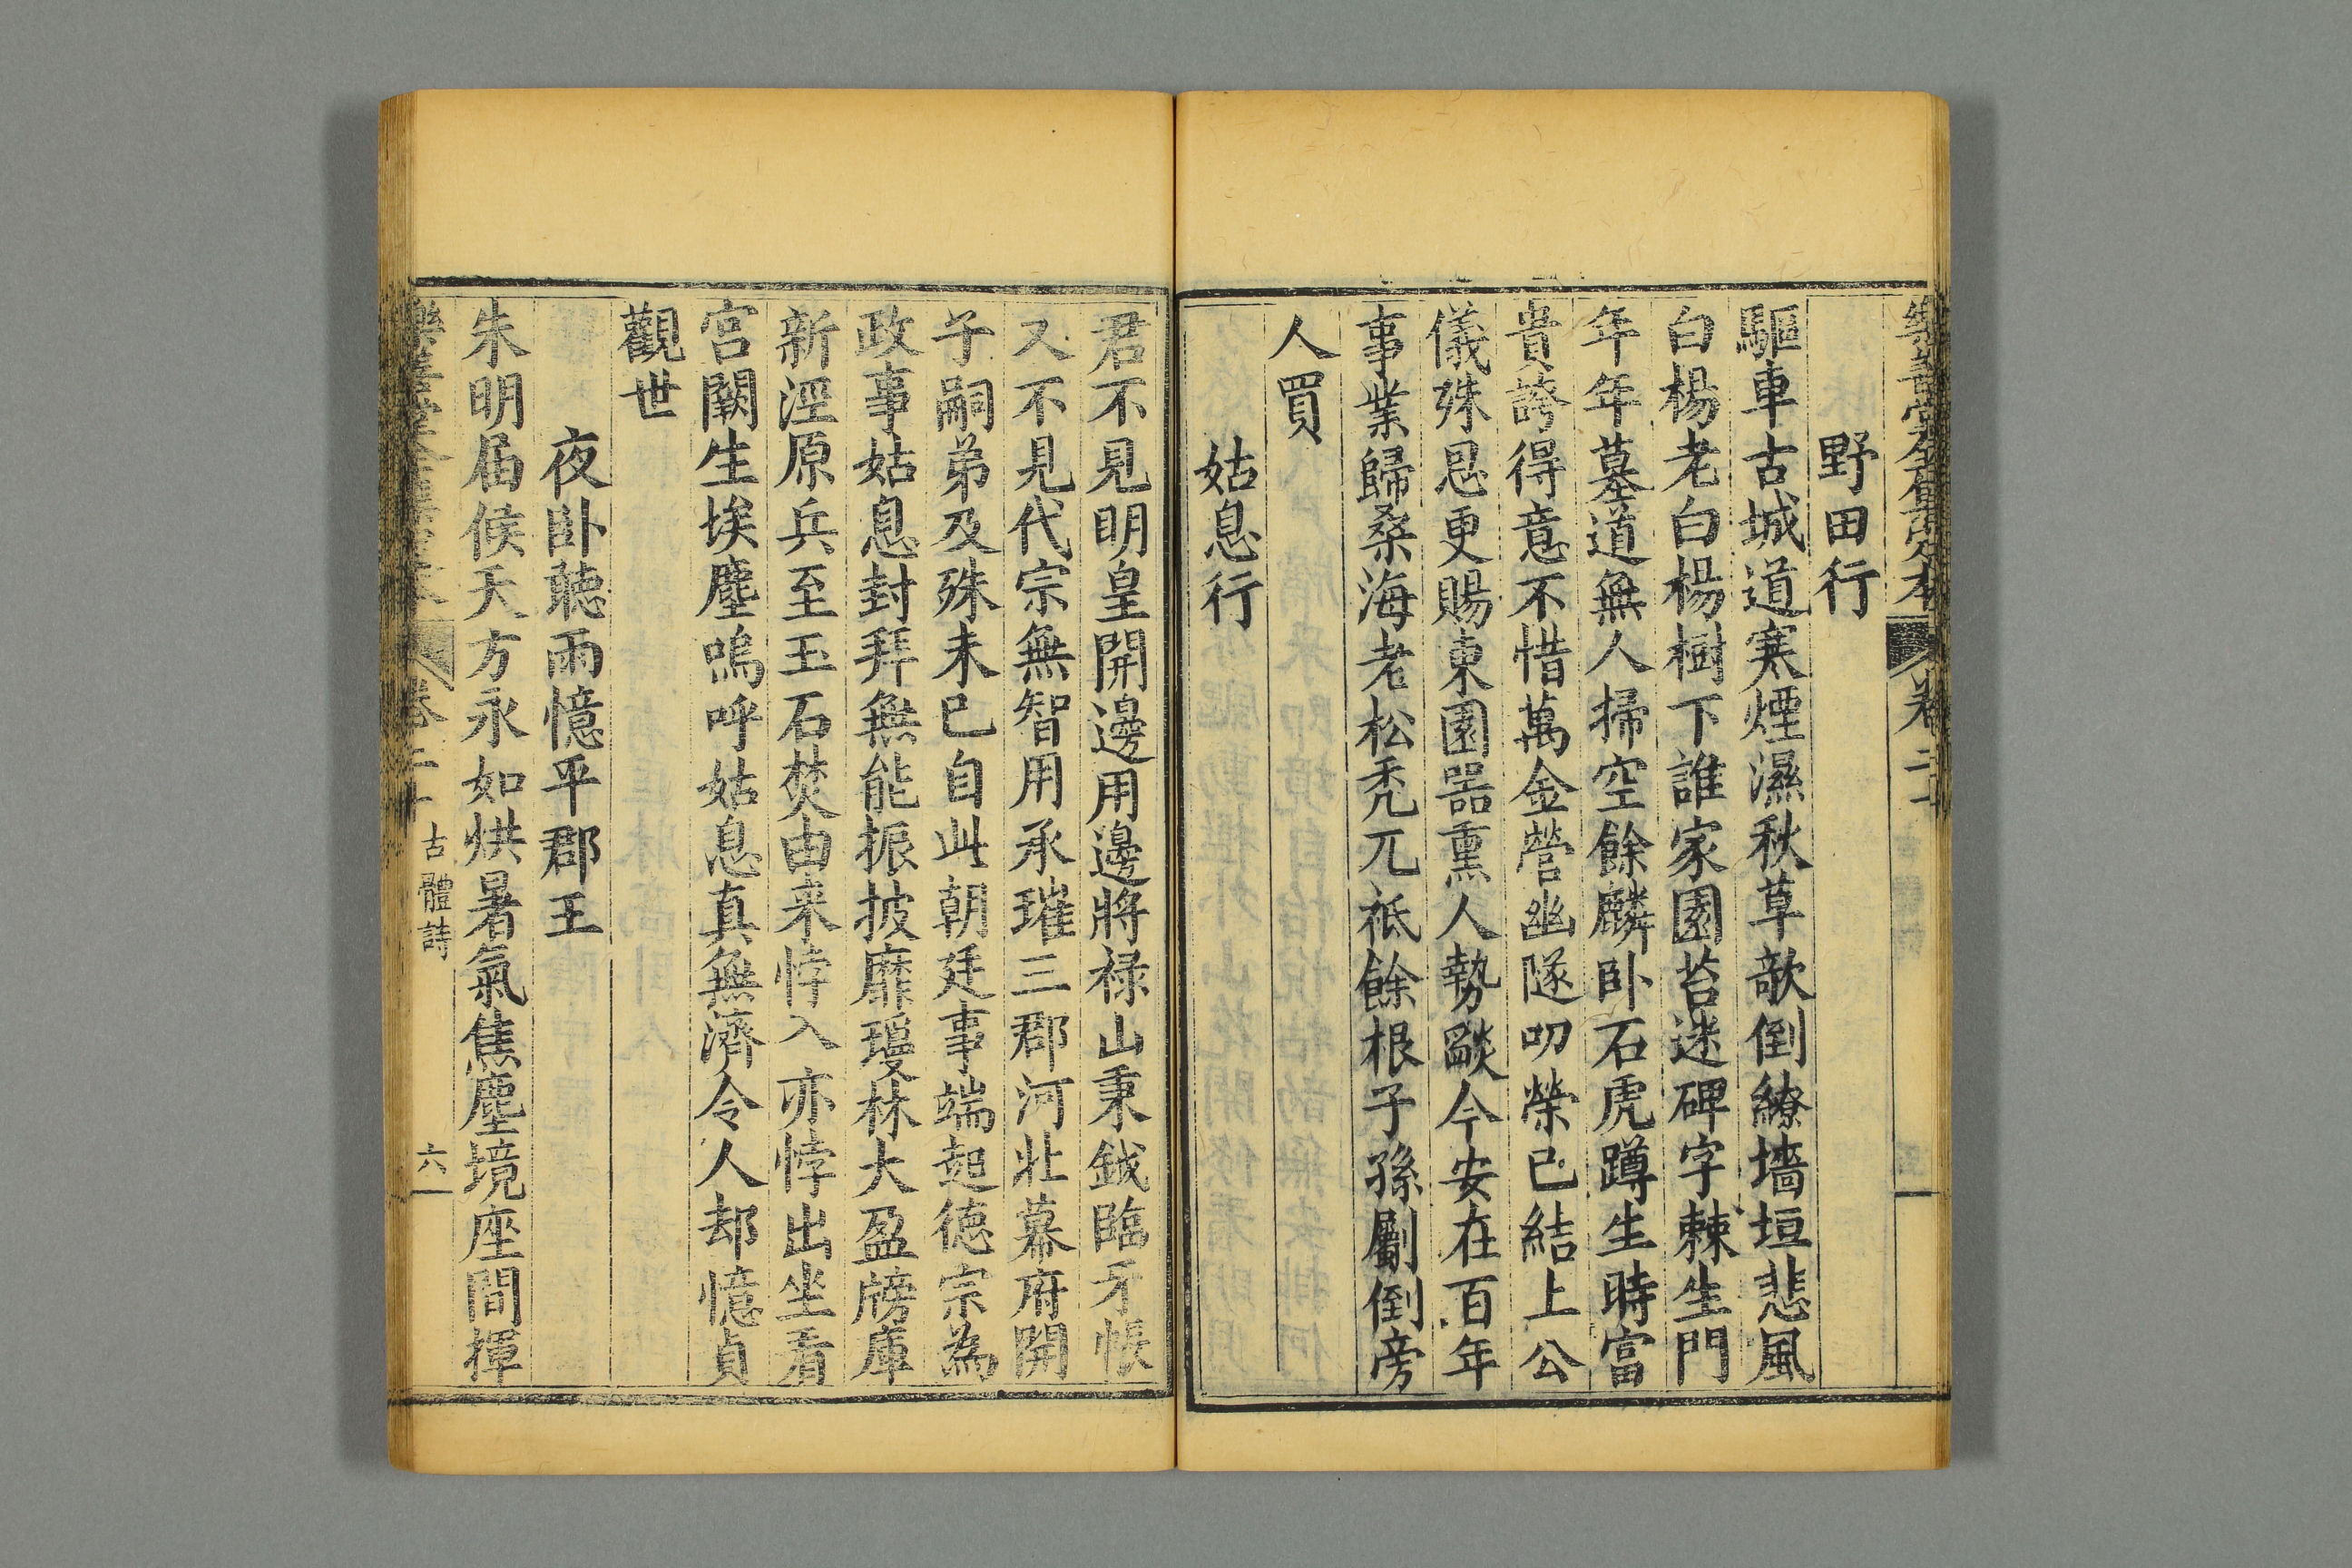 樂善堂全集定本 卷二十
野田行
驅車古城道寒煙濕秋草欹倒繚墻垣悲風
白楊老白楊樹下誰家園苔迷碑字棘生門
年年墓道無人掃空餘麟卧石虎蹲生時富
貴誇得意不惜萬金營幽隧叨榮已結上公
儀殊恩更賜東園器熏人勢燄今安在百年
事業歸桑海老松禿兀祗餘根子孫劚倒旁
人買
姑息行
君不見明皇開邊用邊將祿山秉鉞臨牙帳
又不見代宗無智用承璀三郡河北幕府開
子嗣弟及殊未已自此朝廷事端起德宗為
政事姑息封拜無能振披靡瓊林大盈牓庫
新涇原兵至玉石焚由来悖入亦悖出坐看
宮闕生埃塵嗚呼姑息真無濟令人却憶貞
觀世
夜卧聽雨憶平郡王
朱明届候天方永如烘暑氣焦塵境座間揮
樂善堂全集定本 卷二十 古體詩 六